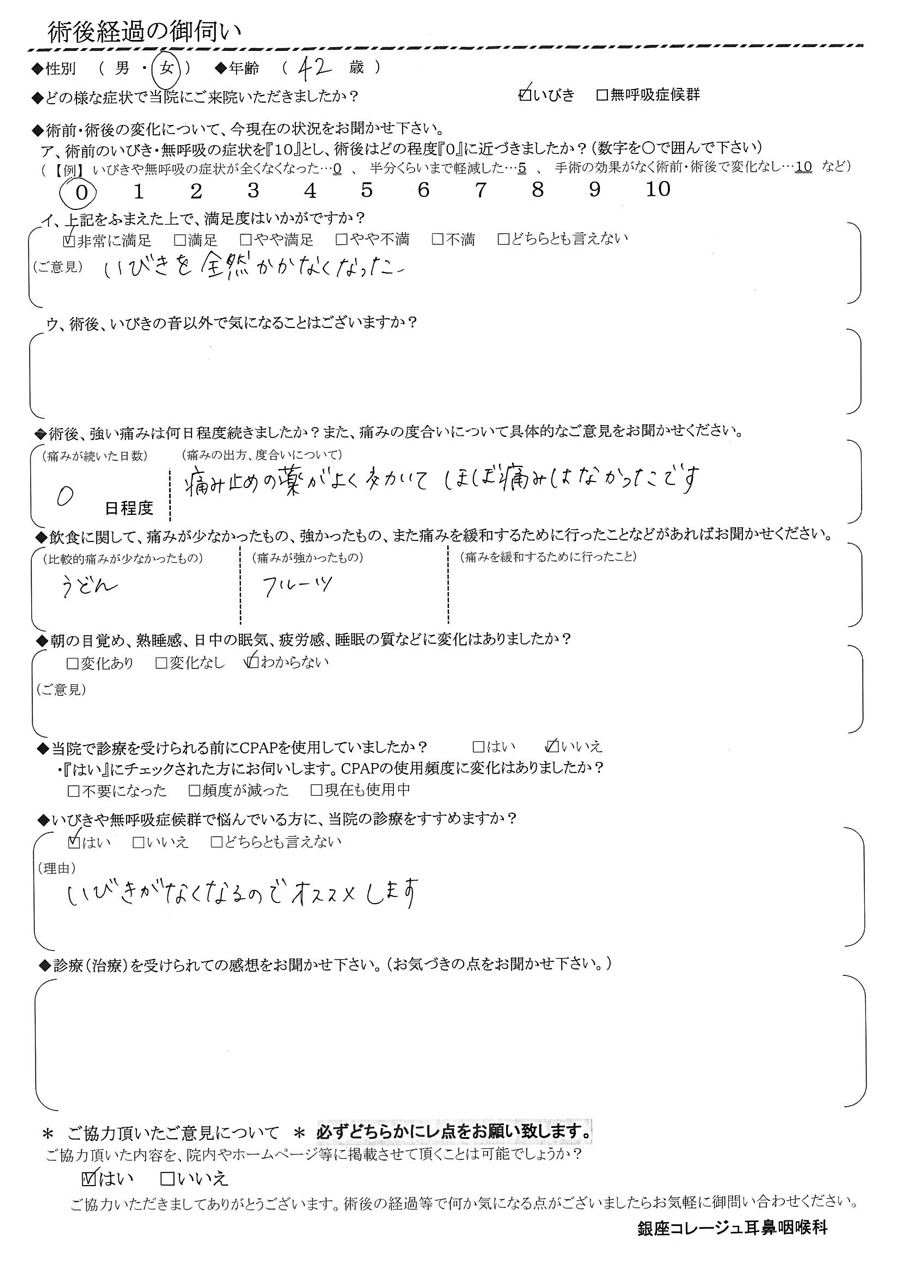 術後経過の御伺い
◆性別 ( 男 ・ 女 ) ◆年齢 ( 42 歳 )
◆どの様な症状で当院にご来院いただきましたか? ☑いびき □無呼吸症候群
◆術前・術後の変化について、今現在の状況をお聞かせ下さい。
ア、術前のいびき・無呼吸の症状を『10』とし、術後はどの程度『0』に近づきましたか?(数字を○で囲んで下さい)
(【例】いびきや無呼吸の症状が全くなくなった…0 、 半分くらいまで軽減した…5 、 手術の効果がなく術前・術後で変化なし…10 など)
0 1 2 3 4 5 6 7 8 9 10
イ、上記をふまえた上で、満足度はいかがですか?
☑非常に満足 □満足 □やや満足 □やや不満 □不満 □どちらとも言えない
(ご意見) いびきを全然かかなくなった
ウ、術後、いびきの音以外で気になることはございますか?
◆術後、強い痛みは何日程度続きましたか?また、痛みの度合いについて具体的なご意見をお聞かせください。
(痛みが続いた日数) (痛みの出方、度合いについて)
0 日程度 痛み止めの薬がよくきいて ほぼ痛みはなかったです
◆飲食に関して、痛みが少なかったもの、強かったもの、また痛みを緩和するために行ったことなどがあればお聞かせください。
(比較的痛みが少なかったもの) (痛みが強かったもの) (痛みを緩和するために行ったこと)
うどん フルーツ
◆朝の目覚め、熟睡感、日中の眠気、疲労感、睡眠の質などに変化はありましたか?
□変化あり □変化なし ☑わからない
(ご意見)
◆当院で診療を受けられる前にCPAPを使用していましたか? □はい ☑いいえ
・『はい』にチェックされた方にお伺いします。CPAPの使用頻度に変化はありましたか?
□不要になった □頻度が減った □現在も使用中
◆いびきや無呼吸症候群で悩んでいる方に、当院の診療をすすめますか?
☑はい □いいえ □どちらとも言えない
(理由)
いびきがなくなるのでオススメします
◆診療(治療)を受けられての感想をお聞かせ下さい。(お気づきの点をお聞かせ下さい。)
＊ ご協力頂いたご意見について ＊ 必ずどちらかにレ点をお願い致します。
ご協力頂いた内容を、院内やホームページ等に掲載させて頂くことは可能でしょうか?
☑はい □いいえ
ご協力いただきましてありがとうございます。術後の経過等で何か気になる点がございましたらお気軽に御問い合わせください。
銀座コレージュ耳鼻咽喉科